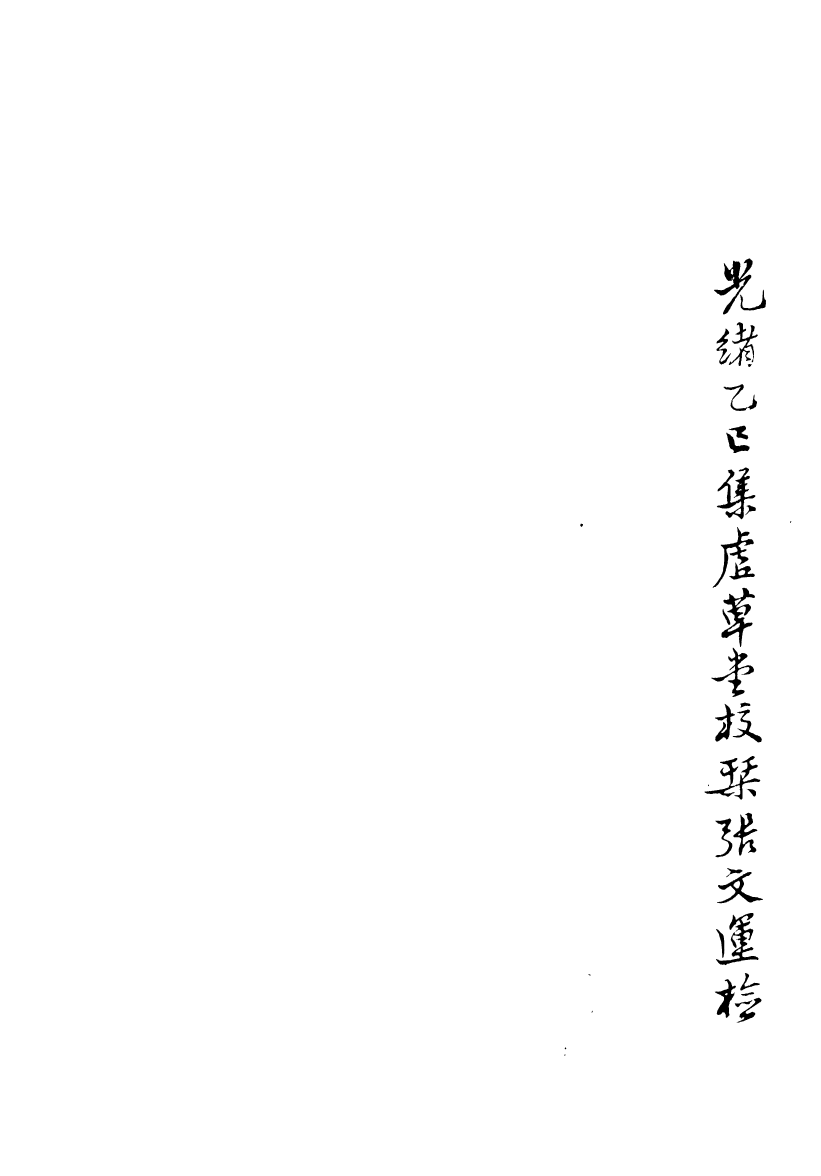 光緒乙巳集虛草堂校栞張文運檢